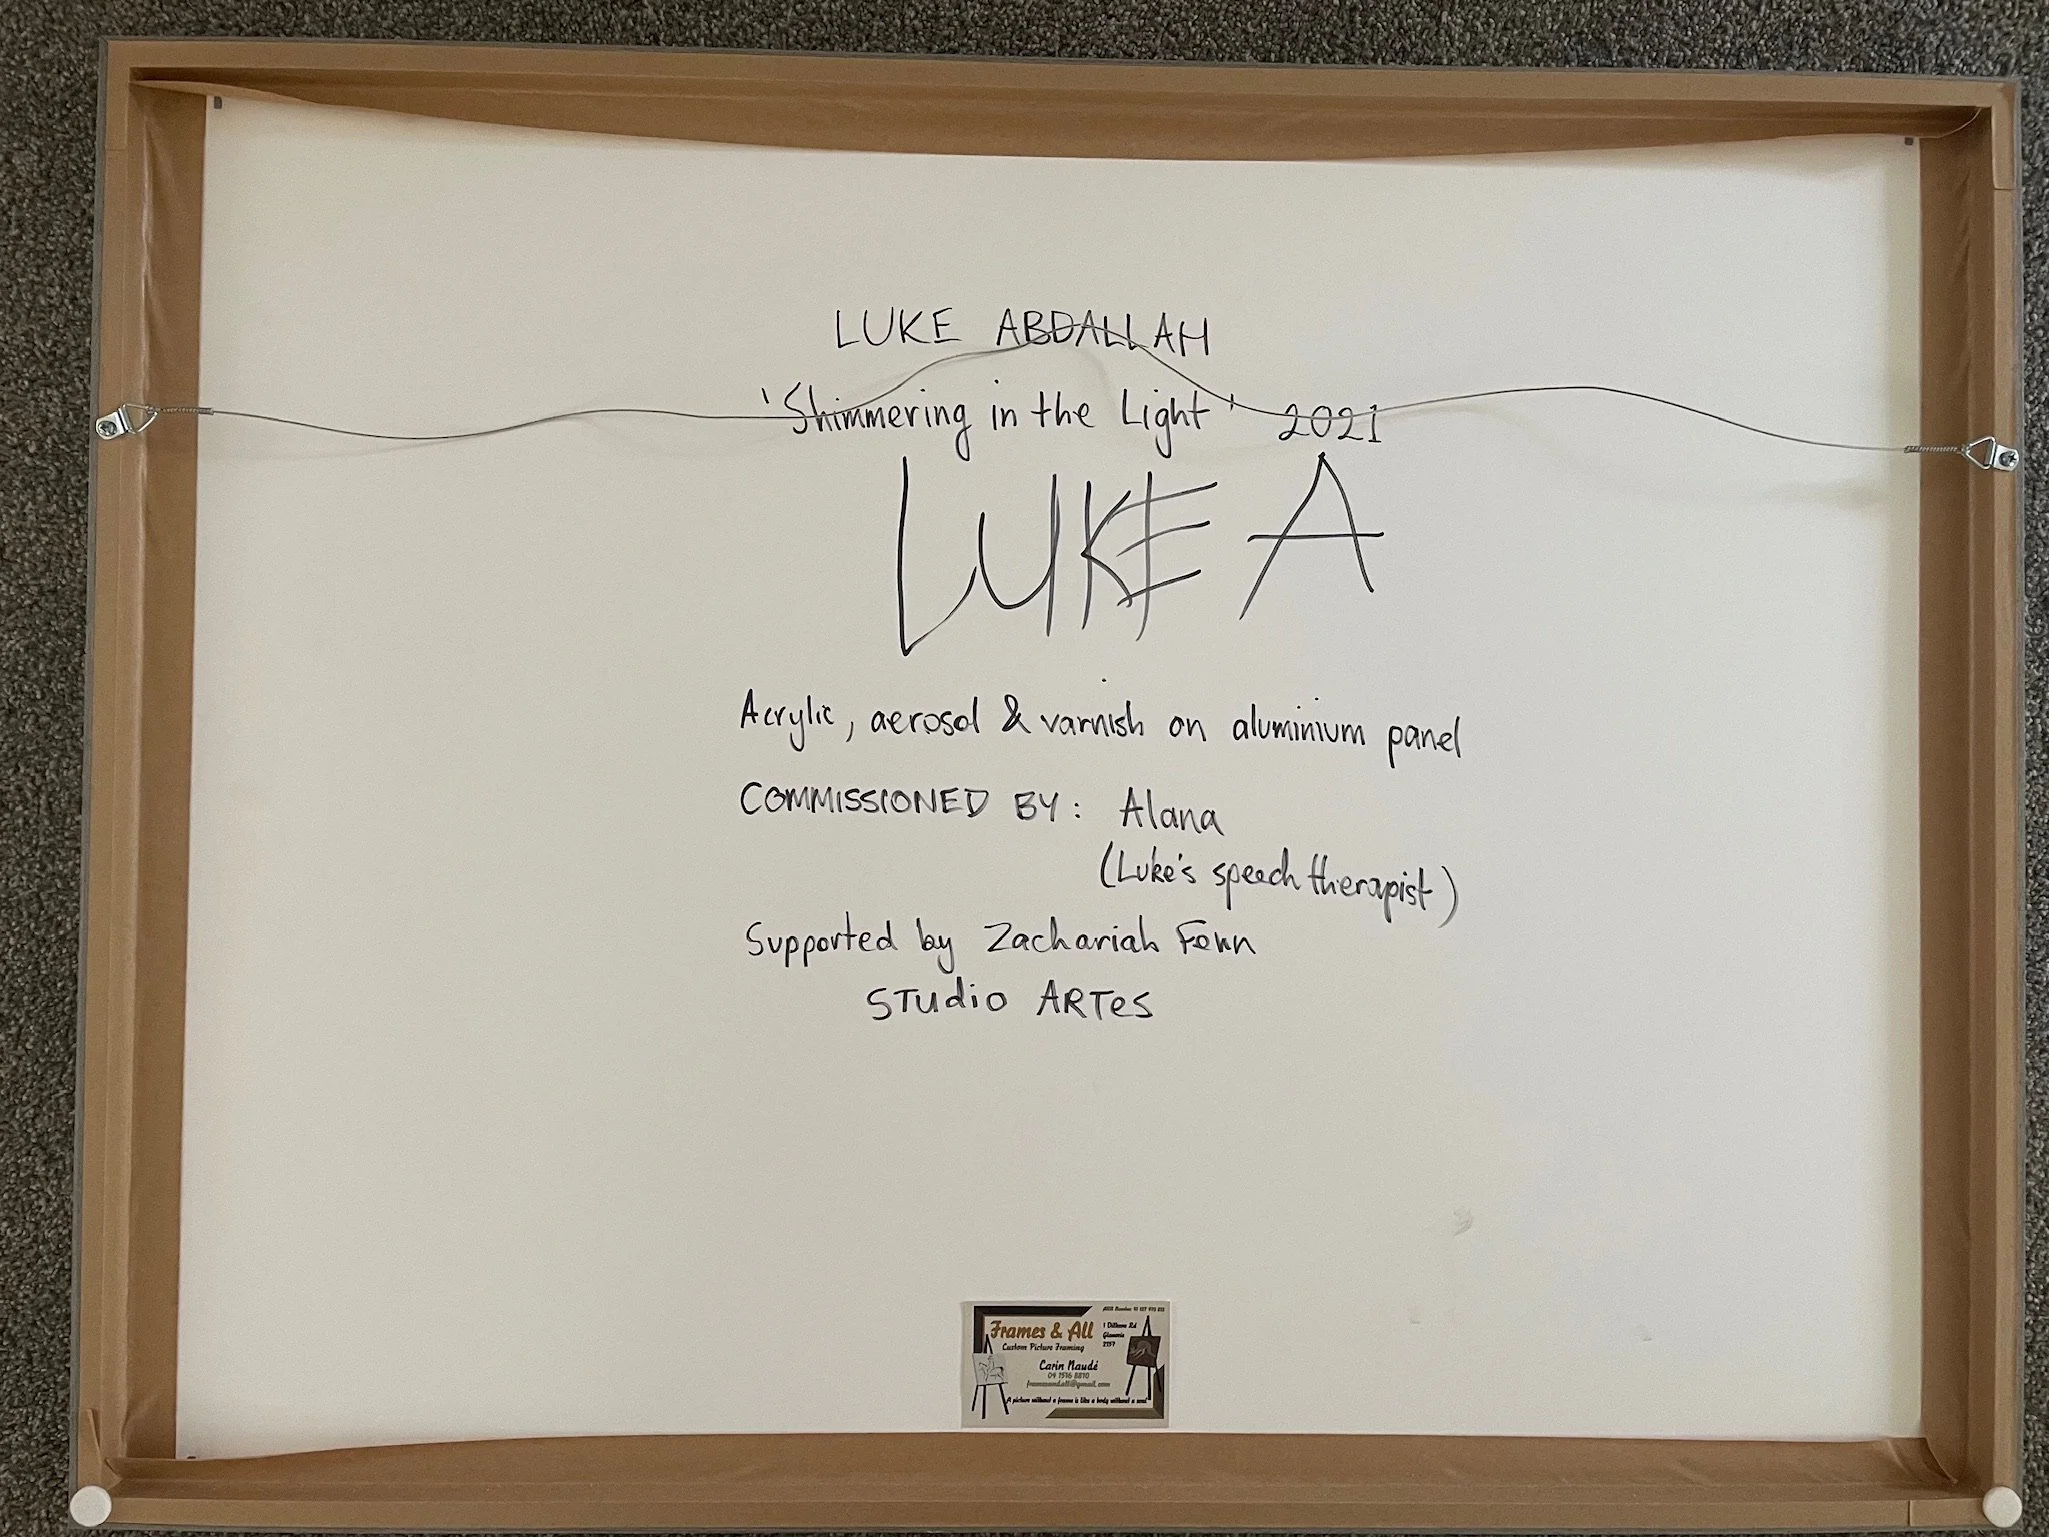 LUKE ABDALLAH
'Shimmering in the Light' 2021
LUKE A
Acrylic, aerosol & varnish on aluminium panel
COMMISSIONED BY: Alana
(Luke's speech therapist)
Supported by Zachariah Fenn
STUdio ARTeS
Frames & All
Custom Picture Framing
1 Dillwon Rd
Glenorie
2157
Carin Naudé
A picture without a frame is like a body without a soul